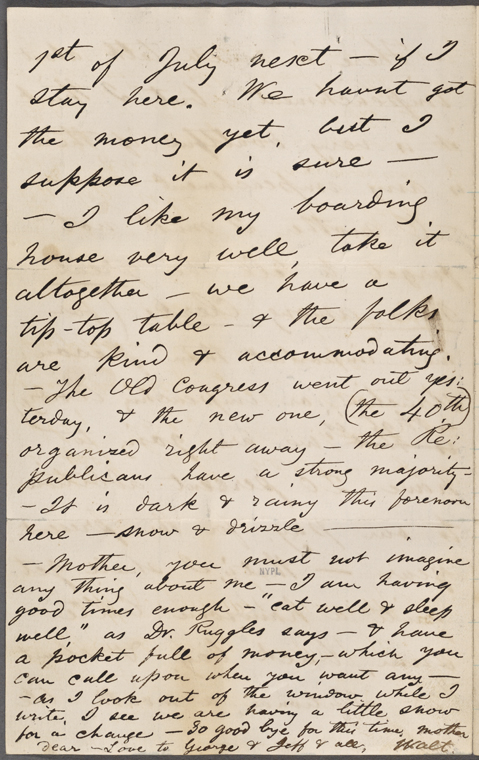 1st of July next — if I
stay here. We havnt got
the money yet, but I
suppose it is sure —
— I like my boarding
house very well, take it
altogether — we have a
tip-top table — & the folks
are kind & accommodating.
— The Old Congress went out yes:
terday, & the new one, (the 40th)
organized right away — the Re:
publicans have a strong majority —
— It is dark & rainy this forenoon
here — snow & drizzle —
— Mother, you must not imagine
any thing about me — I am having
NYPL
good times enough — "eat well & sleep
well," as Dr. Ruggles says — & have
a pocket full of money, — which you
can call upon when you want any —
— as I look out of the window while I
write, I see we are having a little snow
for a change — So good bye for this time, mother
dear — Love to George & Jeff & all, Walt.